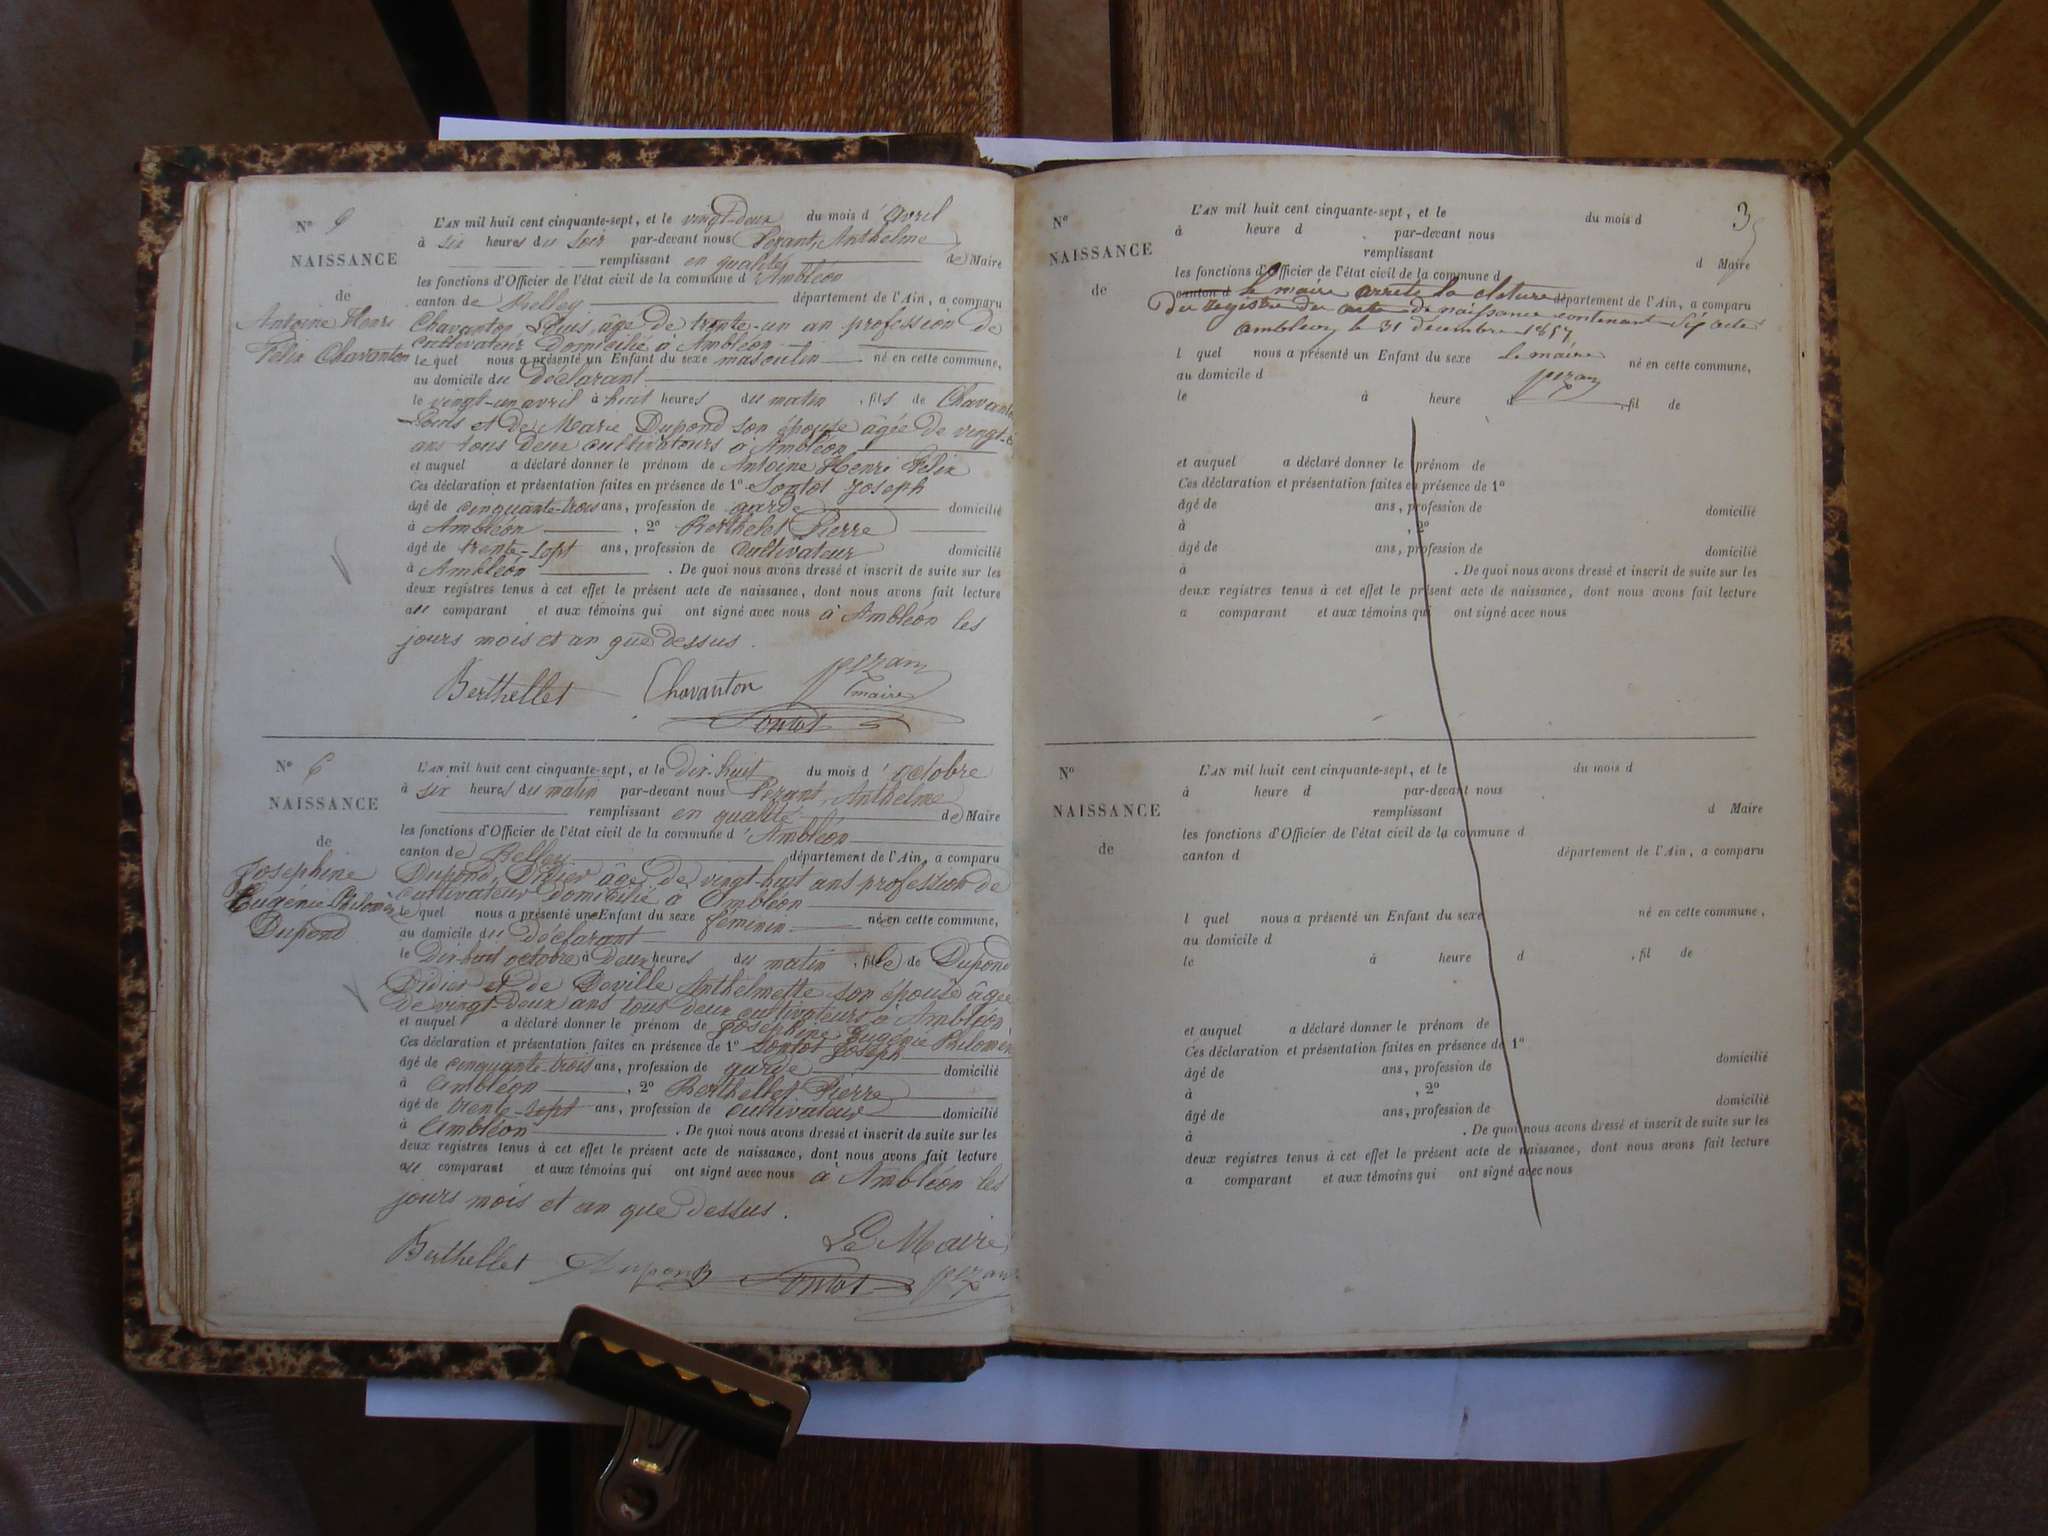 No
NAISSANCE
de
Antoine Henri
Felix Chavanton
L'AN mil huit cent cinquante-sept, et le vingt-deux du mois d'Avril
à six heures du soir par-devant nous Anthelme
remplissant en qualité de Maire
les fonctions d'Officier de l'état civil de la commune d'Ambléon
canton de Belley département de l'Ain, a comparu
Chavanton Louis, âgé de trente-un an profession de
cultivateur domicilié à Ambléon
le quel nous a présenté un Enfant du sexe masculin né en cette commune,
au domicile du déclarant
le vingt-un avril à huit heures du matin, fils de
Louis et de Marie Dupond son épouse âgée de
ans tous deux cultivateurs à Ambléon
et auquel a déclaré donner le prénom de Antoine Henri Felix
Ces déclaration et présentation faites en présence de 1º Joseph
âgé de cinquante-trois ans, profession de garde domicilié
à Ambléon, 2º Berthelet Pierre
âgé de trente-sept ans, profession de cultivateur domicilié
à Ambléon. De quoi nous avons dressé et inscrit de suite sur les
deux registres tenus à cet effet le présent acte de naissance, dont nous avons fait lecture
au comparant et aux témoins qui ont signé avec nous à Ambléon les
jours mois et an que dessus.
Berthellet Chavanton
maire
No 6
NAISSANCE
de
Josephine
Eugénie
Dupond
L'AN mil huit cent cinquante-sept, et le dix-huit du mois d'octobre
à six heures du matin par-devant nous Pezant, Anthelme
remplissant en qualité de Maire
les fonctions d'Officier de l'état civil de la commune d'Ambléon
canton de Belley département de l'Ain, a comparu
Dupond, Didier âgé de vingt-huit ans profession de
cultivateur domicilié à Ambléon
le quel nous a présenté un Enfant du sexe féminin né en cette commune,
au domicile du déclarant
le dix-huit octobre à deux heures du matin, fille de Dupond
Didier et de Deville Anthelmette son épouse âgée
de vingt-deux ans tous deux cultivateurs à Ambléon
et auquel a déclaré donner le prénom de Josephine Eugénie
Ces déclaration et présentation faites en présence de 1º Joseph
âgé de cinquante-trois ans, profession de garde domicilié
à Ambléon, 2º Berthellet Pierre
âgé de trente-sept ans, profession de cultivateur domicilié
à Ambléon. De quoi nous avons dressé et inscrit de suite sur les
deux registres tenus à cet effet le présent acte de naissance, dont nous avons fait lecture
au comparant et aux témoins qui ont signé avec nous à Ambléon les
jours mois et an que dessus.
Le Maire
Berthellet Dupond
3
No
NAISSANCE
de
L'AN mil huit cent cinquante-sept, et le du mois d
à heure d par-devant nous
remplissant d Maire
les fonctions d'Officier de l'état civil de la commune d
canton d le maire arrete la cloture département de l'Ain, a comparu
du registre de naissance contenant acte
ambleon le 31 decembre 1857
l quel nous a présenté un Enfant du sexe le maire né en cette commune,
au domicile d
le à heure d, fil de
et auquel a déclaré donner le prénom de
Ces déclaration et présentation faites en présence de 1º
âgé de ans, profession de domicilié
à, 2º
âgé de ans, profession de domicilié
à. De quoi nous avons dressé et inscrit de suite sur les
deux registres tenus à cet effet le présent acte de naissance, dont nous avons fait lecture
a comparant et aux témoins qui ont signé avec nous
No
NAISSANCE
de
L'AN mil huit cent cinquante-sept, et le du mois d
à heure d par-devant nous
remplissant d Maire
les fonctions d'Officier de l'état civil de la commune d
canton d département de l'Ain, a comparu
l quel nous a présenté un Enfant du sexe né en cette commune,
au domicile d
le à heure d, fil de
et auquel a déclaré donner le prénom de
Ces déclaration et présentation faites en présence de 1º
âgé de ans, profession de domicilié
à, 2º
âgé de ans, profession de domicilié
à. De quoi nous avons dressé et inscrit de suite sur les
deux registres tenus à cet effet le présent acte de naissance, dont nous avons fait lecture
a comparant et aux témoins qui ont signé avec nous